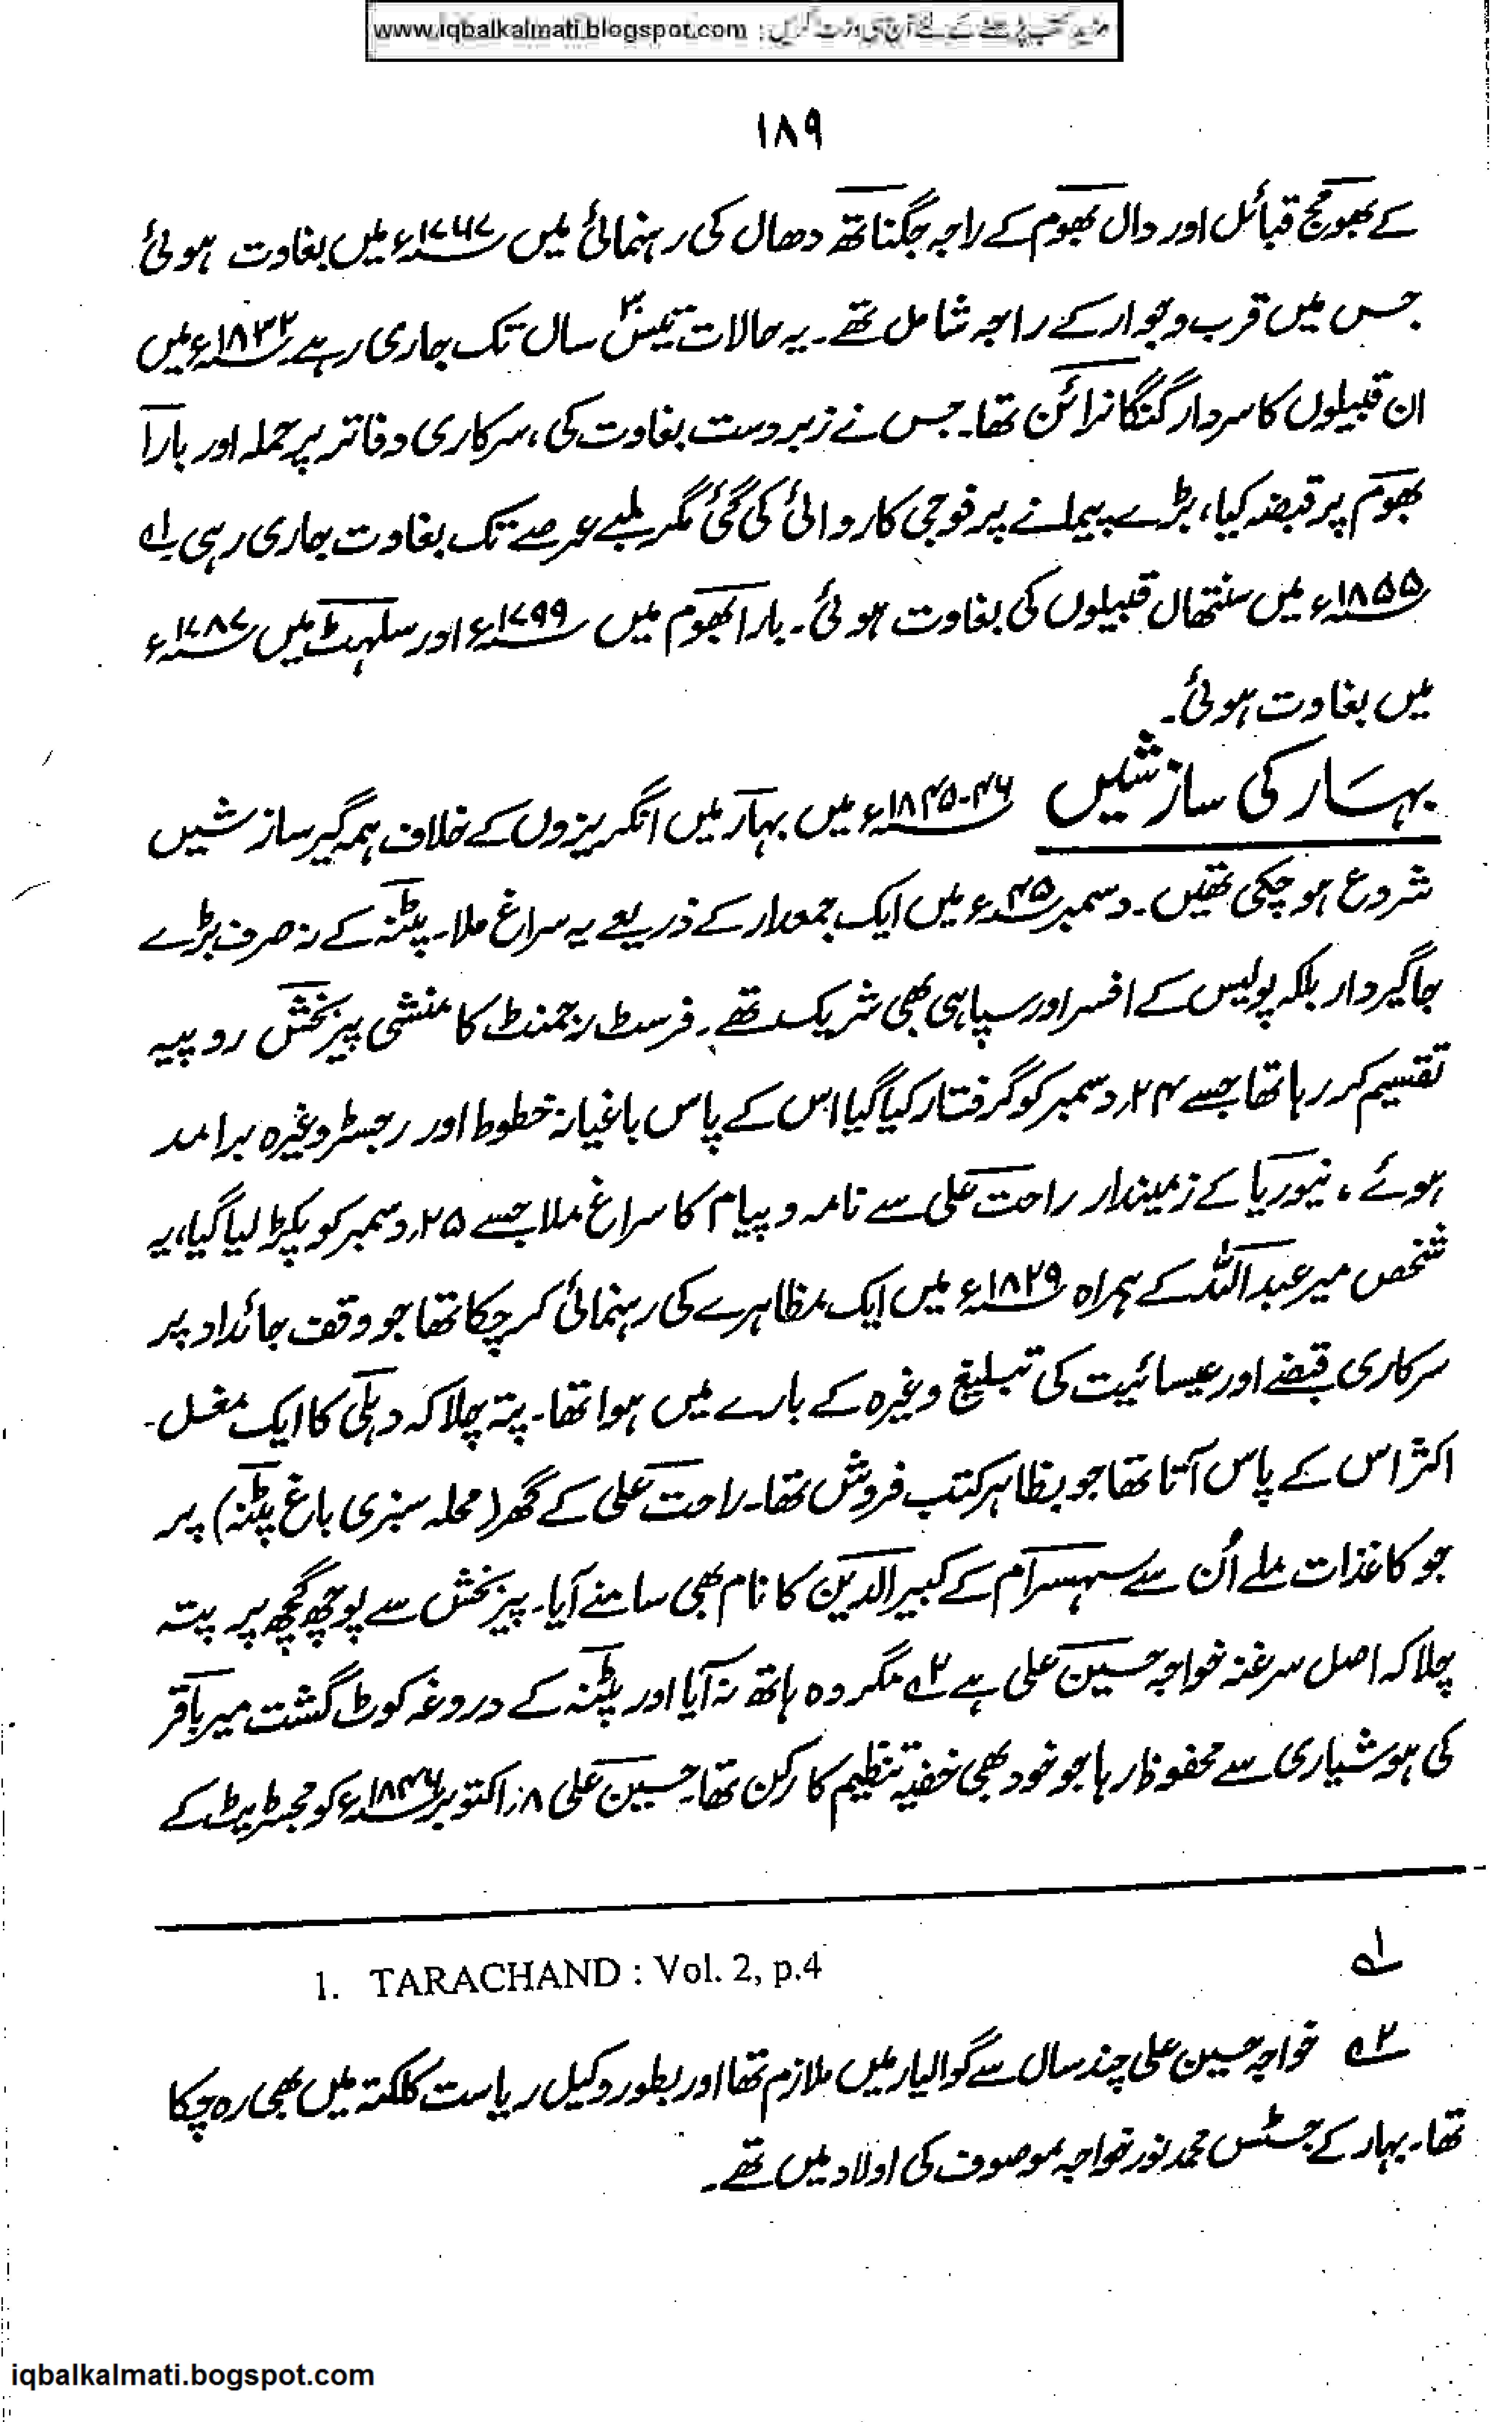 مزید کتب پڑھنے کے لئے آج ہی وزٹ کریں : www.iqbalkalmati.blogspot.com
۱۸۹
کے بھومج قبائل اور دال بھوم کے راجہ جگناتھ دھال کی رہنمائی میں ۱۷۶۷ء میں بغاوت ہوئی
جس میں قرب و جوار کے راجہ شامل تھے۔ یہ حالات تیس ۳۰ سال تک جاری رہے ۱۸۳۲ء میں
ان قبیلوں کا سردار گنگا نرائن تھا۔ جس نے زبردست بغاوت کی، سرکاری دفاتر پر حملہ اور بارا
بھوم پر قبضہ کیا، بڑے پیمانے پر فوجی کاروائی کی گئی مگر لمبے عرصے تک بغاوت جاری رہی ۱؎
۱۸۵۵ء میں سنتھال قبیلوں کی بغاوت ہوئی۔ بارا بھوم میں ۱۷۹۹ء اور سلہٹ میں ۱۷۸۷ء
میں بغاوت ہوئی۔
بہار کی سازشیں ۴۶-۱۸۴۵ء میں بہار میں انگریزوں کے خلاف ہمہ گیر سازشیں
شروع ہو چکی تھیں۔ دسمبر ۴۵ء میں ایک جمعدار کے ذریعے یہ سراغ ملا۔ پٹنہ کے نہ صرف بڑے
جاگیردار بلکہ پولیس کے افسر اور سپاہی بھی شریک تھے۔ فرسٹ رجمنٹ کا منشی پیر بخش روپیہ
تقسیم کر رہا تھا جسے ۲۴؍ دسمبر کو گرفتار کیا گیا اس کے پاس باغیانہ خطوط اور رجسٹر وغیرہ برامد
ہوئے، نیوریا کے زمیندار راحت علی سے نامہ و پیام کا سراغ ملا جسے ۲۵؍ دسمبر کو پکڑ لیا گیا، یہ
شخص میر عبداللہ کے ہمراہ ۱۸۲۹ء میں ایک مظاہرے کی رہنمائی کر چکا تھا جو وقف جائداد پر
سرکاری قبضے اور عیسائیت کی تبلیغ وغیرہ کے بارے میں ہوا تھا۔ پتہ چلا کہ دہلی کا ایک مغل۔
اکثر اس کے پاس آتا تھا جو بظاہر کتب فروش تھا۔ راحت علی کے گھر (محلہ سبزی باغ پٹنہ) پر
جو کاغذات ملے اُن سے سہسرام کے کبیر الدین کا نام بھی سامنے آیا۔ پیر بخش سے پوچھ گچھ پر پتہ
چلا کہ اصل سرغنہ خواجہ حسین علی ہے ۲؎ مگر وہ ہاتھ نہ آیا اور پٹنہ کے دروغہ کوٹ گشت میر باقر
کی ہوشیاری سے محفوظ رہا جو خود بھی خفیہ تنظیم کا رکن تھا۔ حسین علی ۸؍ اکتوبر ۱۸۴۶ء کو مجسٹریٹ کے
۱؎ 1. TARACHAND : Vol. 2, p.4
۲؎ خواجہ حسین علی چند سال سے گوالیار میں ملازم تھا اور بطور وکیل ریاست کلکتہ میں بھی رہ چکا
تھا۔ بہار کے جسٹس محمد نور خواجہ موصوف کی اولاد میں تھے۔
iqbalkalmati.bogspot.com